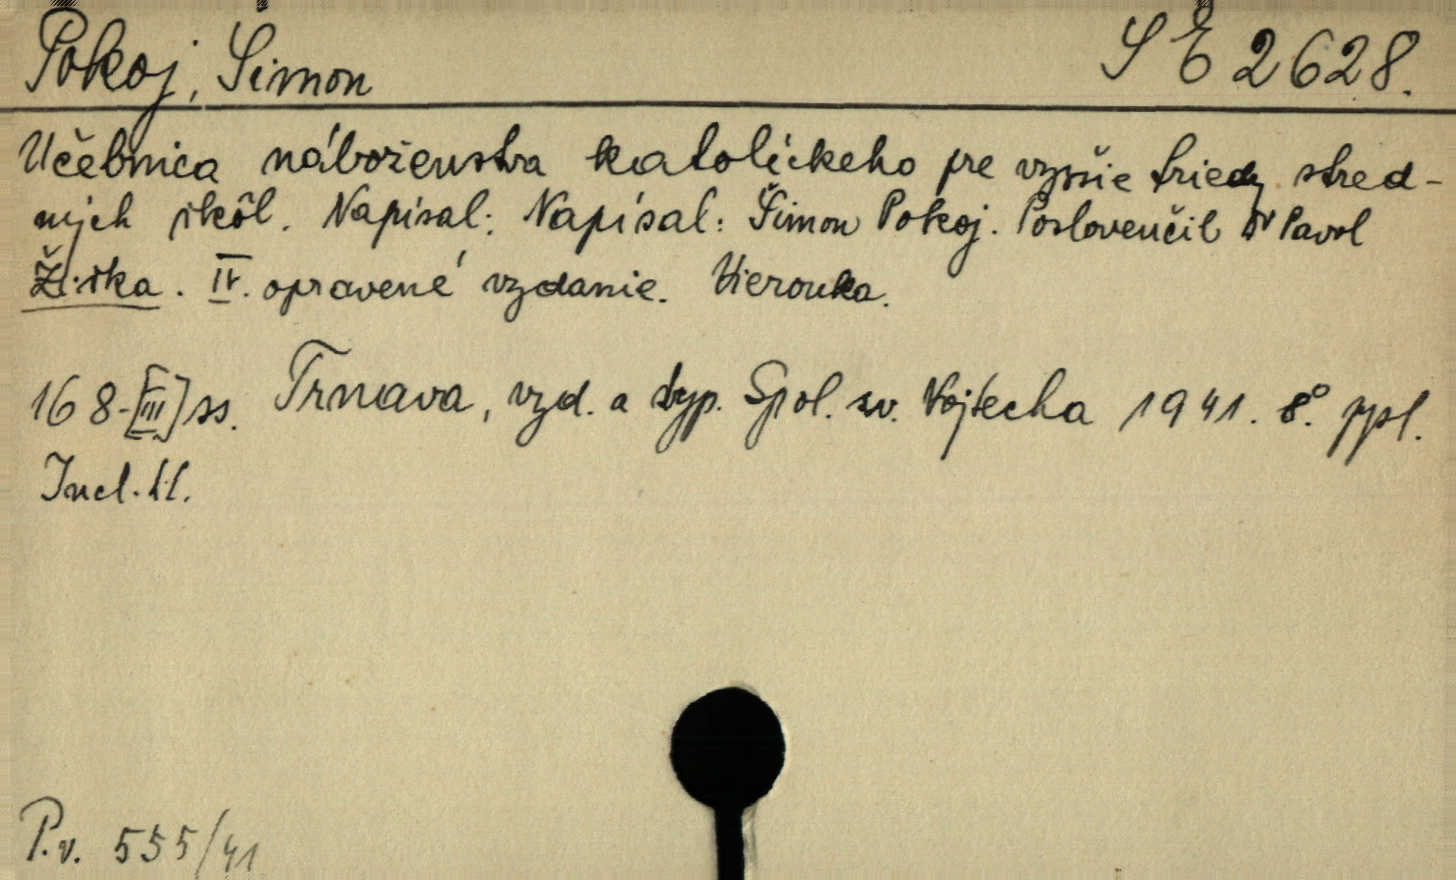 Pokoj, Šimon
S E 2628.
Učebnica náboženstva katolíckeho pre vyššie triedy stred-
ných škôl. Napísal: Napísal: Šimon Pokoj. Poslovenčil Dr Pavol
Žiška. IV. opravené vydanie. Vierouka.
168-[III] ss. Trnava, vyd. a typ. Spol. sv. Vojtecha 1941. 8°. ppl.
Incl. tt.
P.v. 555/41